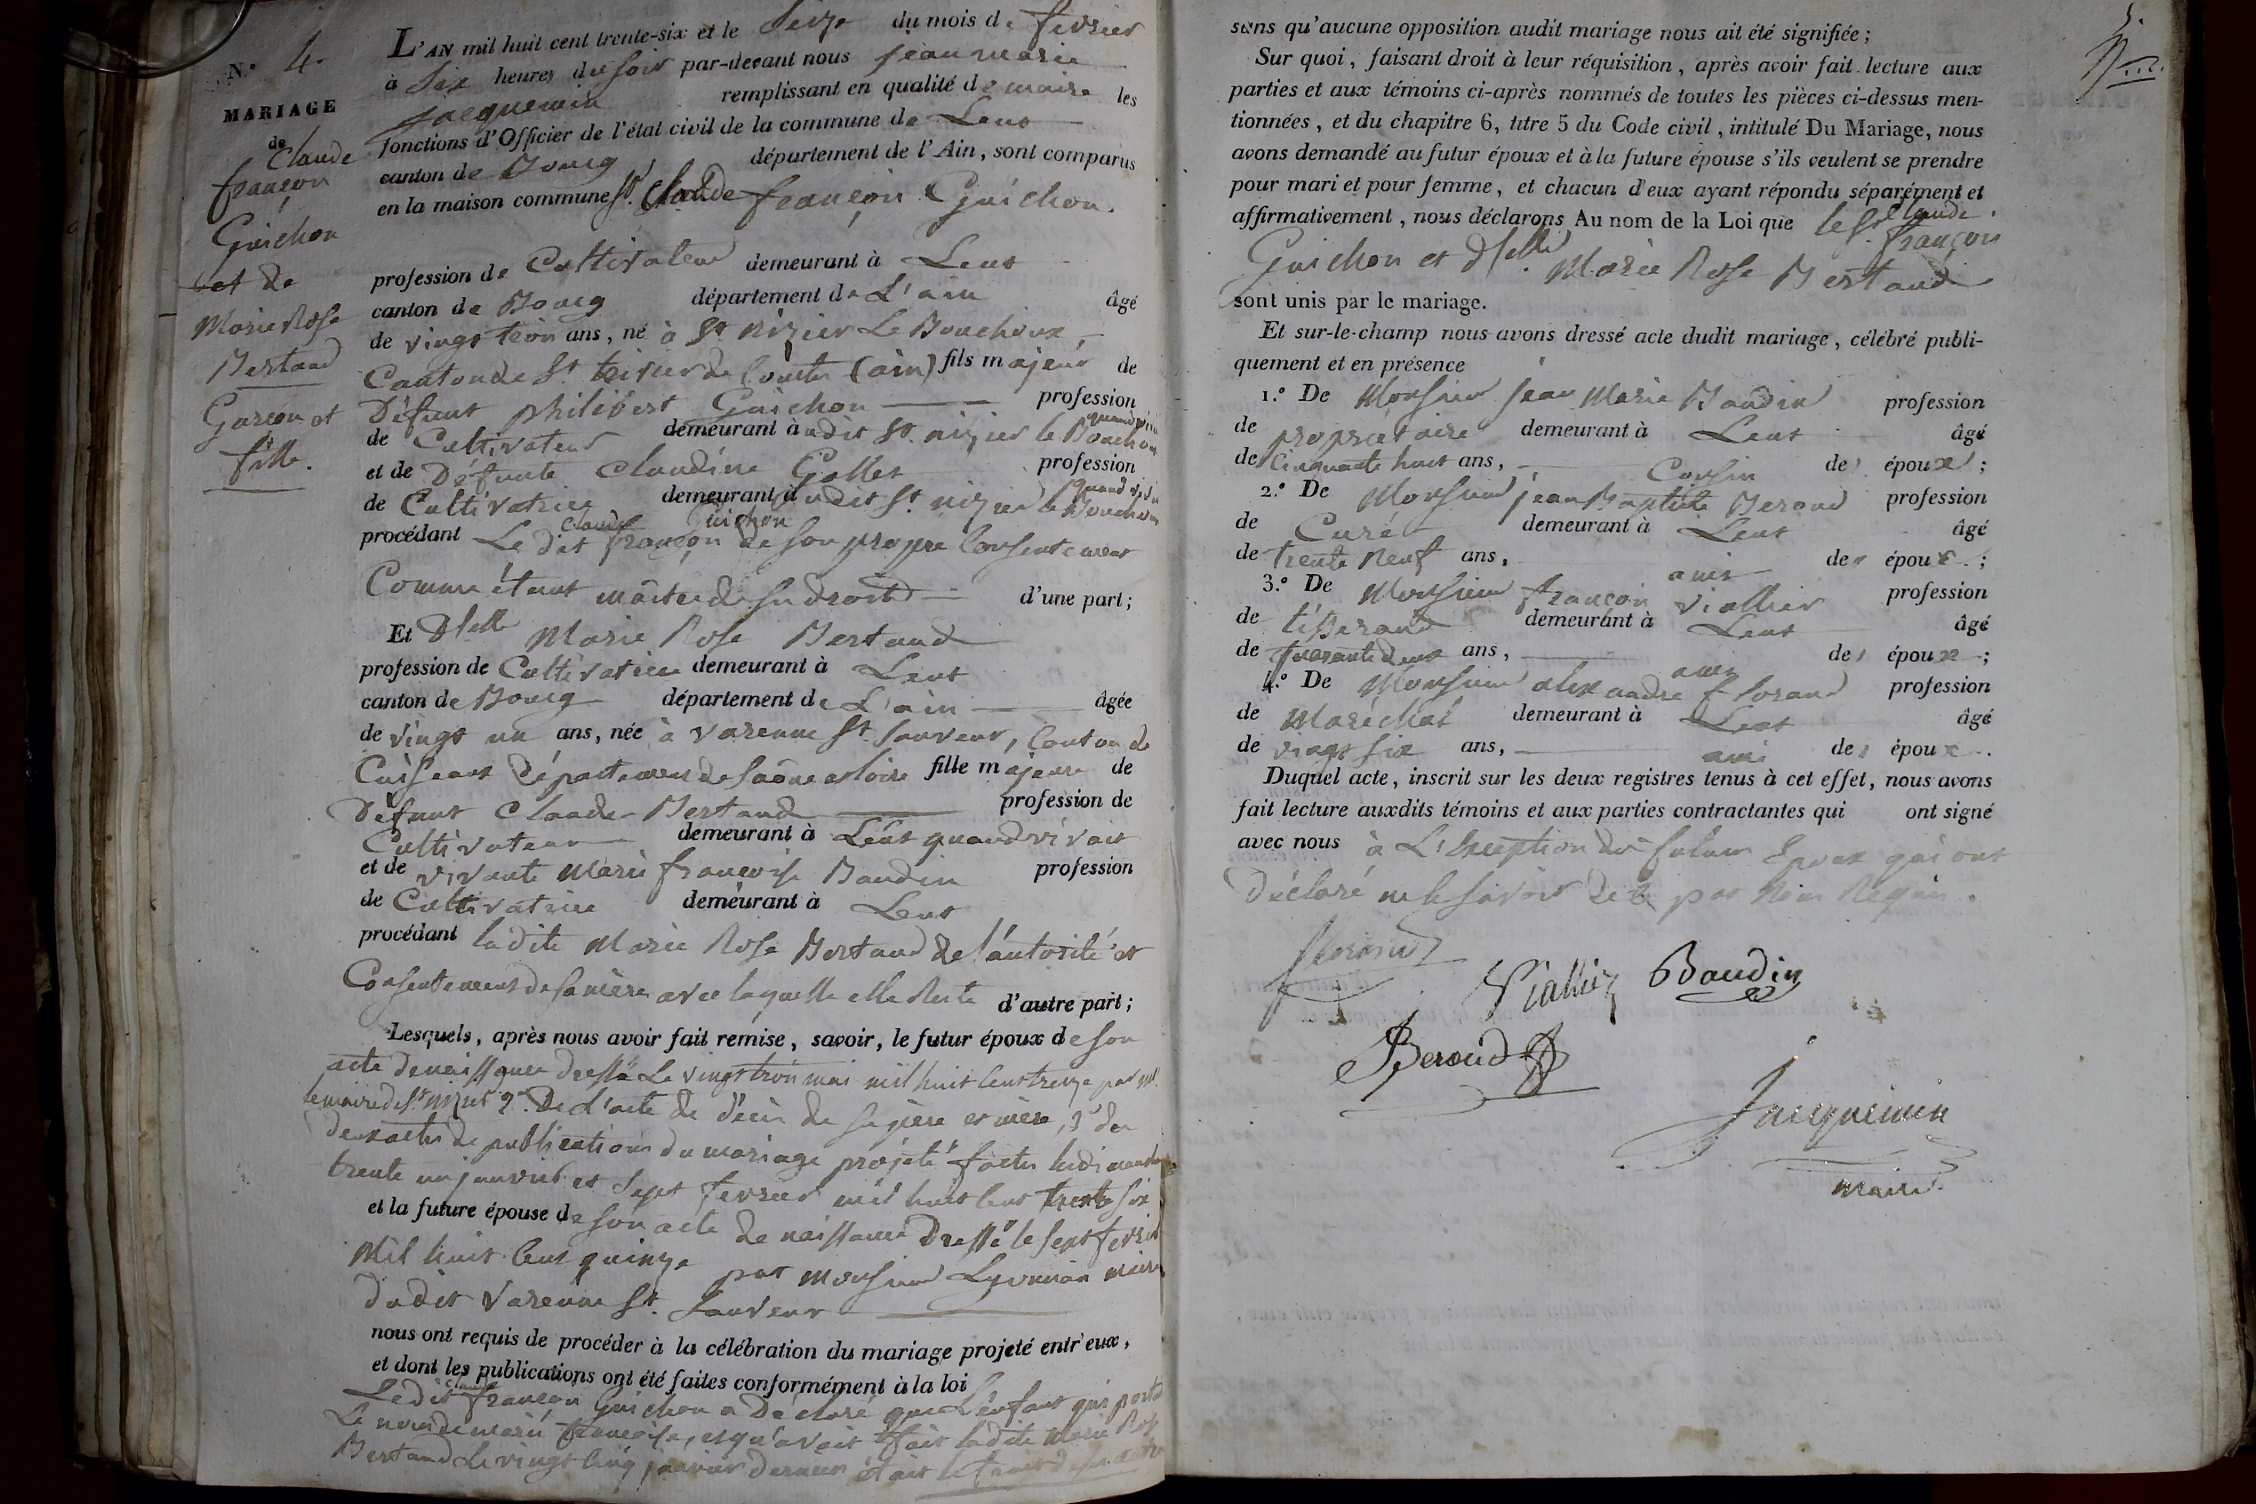 N.° 4.
MARIAGE
de
Claude
françois
Guichon
et de
Marie Rose
Bertaud
Garçon et
fille.
L'AN mil huit cent trente-six et le seize du mois de fevrier
à six heures du soir par-devant nous jean marie
jacquemin remplissant en qualité de maire les
fonctions d'Officier de l'état civil de la commune de Lent
canton de Bourg département de l'Ain, sont comparus
en la maison commune Sr. Claude françois Guichon.
profession de Cultivateur demeurant à Lent
canton de Bourg département de L'ain âgé
de vingt trois ans, né à St. nizier Le Bouchoux,
Canton de St. trivier de Courtes (ain) fils majeur de
Défunt philibert Guichon profession
de Cultivateur demeurant audit St. nizier le Bouchoux quand vivait
et de Défunte Claudine Gallet profession
de Cultivatrice demeurant audit St. nizier le Bouchoux quand vivait
procédant Le dit Claude françois Guichon de son propre Consentement
Comme étant maitre de ses droits d'une part;
Et Dlelle Marie Rose Bertaud
profession de Cultivatrice demeurant à Lent
canton de Bourg département de L'ain âgée
de vingt un ans, née à varenne St. Sauveur, Canton de
Cuiseaux Département de Saône et loire fille majeure de
Défunt Claude Bertaud profession de
Cultivateur demeurant à Lent quand vivait
et de vivante Marie françoise Baudin profession
de Cultivatrice demeurant à Lent
procédant la dite Marie Rose Bertaud de l'autorité et
Consentement de sa mère avec laquelle elle Reste d'autre part;
Lesquels, après nous avoir fait remise, savoir, le futur époux de son
acte de naissance dressé Le vingt trois mai mil huit Cent treize par Mr.
le maire de St. nizier 2°. De L'acte de décès de ses père et mère, 3° des
deux actes de publications du mariage projeté faites
trente un janvier et sept fevrier mil huit Cent trente six
et la future épouse de son acte de naissance Dressé le sept fevrier
Mil huit Cent quinze par monsieur maire
dudit Varenne St. Sauveur
nous ont requis de procéder à la célébration du mariage projeté entr'eux,
et dont les publications ont été faites conformément à la loi
Le dit Claude françois Guichon a Déclaré que L'enfant qui porte
Le nom de marie françoise, et qu'avait fait ladite Marie Rose
Bertaud le vingt Cinq janvier dernier était
sans qu'aucune opposition audit mariage nous ait été signifiée;
Sur quoi, faisant droit à leur réquisition, après avoir fait lecture aux
parties et aux témoins ci-après nommés de toutes les pièces ci-dessus men-
tionnées, et du chapitre 6, titre 5 du Code civil, intitulé Du Mariage, nous
avons demandé au futur époux et à la future épouse s'ils veulent se prendre
pour mari et pour femme, et chacun d'eux ayant répondu séparément et
affirmativement, nous déclarons Au nom de la Loi que le Sr. Claude françois
Guichon et Dlelle Marie Rose Bertaud
sont unis par le mariage.
Et sur-le-champ nous avons dressé acte dudit mariage, célébré publi-
quement et en présence
1.° De Monsieur jean Marie Baudin profession
de propriétaire demeurant à Lent âgé
de Cinquante huit ans, Cousin de époux;
2.° De Monsieur jean Baptiste Beroud profession
de Curé demeurant à Lent âgé
de trente Neuf ans, amis de époux;
3.° De Monsieur françois Viallier profession
de tisserand demeurant à Lent âgé
de quarante deux ans, amis de époux;
4.° De Monsieur alexandre florand profession
de Maréchal demeurant à Lent âgé
de vingt six ans, ami de époux.
Duquel acte, inscrit sur les deux registres tenus à cet effet, nous avons
fait lecture auxdits témoins et aux parties contractantes qui ont signé
avec nous à L'Exception des futurs Epoux qui ont
Déclaré ne le savoir de ce par Nous Requis.
Viallier Baudin
Beroud
Jacquemin
maire